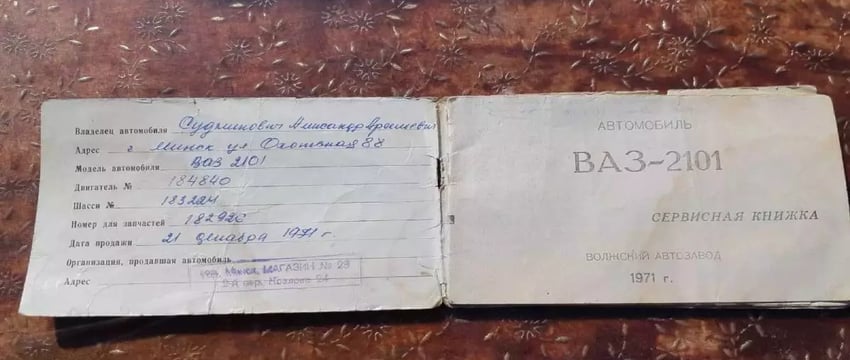 Владелец автомобиля Судминович Александр
Адрес г Минск ул. Охотская 88
Модель автомобиля ВАЗ 2101
Двигатель № 184840
Шасси № 183224
Номер для запчастей 182926
Дата продажи 21 декабря 1971 г
Организация, продавшая автомобиль
МАГАЗИН № 29
Адрес 2-й пер. 24
АВТОМОБИЛЬ
ВАЗ-2101
СЕРВИСНАЯ КНИЖКА
ВОЛЖСКИЙ АВТОЗАВОД
1971 г.